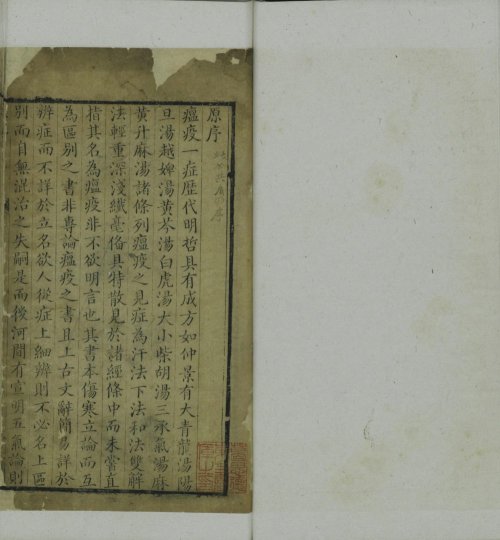 原序
瘟疫一症歷代明哲具有成方如仲景有大青龍湯陽
旦湯越婢湯黃芩湯白虎湯大小柴胡湯三承氣湯麻
黃升麻湯諸條列瘟疫之見症為汗法下法和法雙解
法輕重深淺纖毫偹具特散見於諸經條中而未嘗直
指其名為瘟疫非不欲明言也其書本傷寒立論而互
為區别之書非專論瘟疫之書且上古文辭簡易詳於
辨症而不詳於立名欲人從症上細辨則不必名上區
别而自無混治之失嗣是而後河間有宣明五氣論則